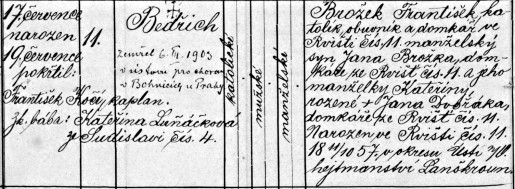 17. července
narozen
19. července
pokřtil:
František Kočí, kaplan.
zk. bába: Kateřina Luňáčková
z Sudislavi čís. 4.
11.
Bedřich
zemřel 6. VI. 1903
v ústavu pro choro
v Bohnicích u Prahy
katolické
mužské
manželské
Brožek František, ka-
tolík, obuvník a domkář ve
Rvišti čís. 11. manželský
syn Jana Brožka, dom-
káře ze Rvišť čís. 11. a jeho
manželky Kateřiny,
rozené + Jana Dvořáka,
domkáře ze Rvišť čís. 11.
Narozen ve Rvišti čís. 11.
18 11/10 57. v okresu Ústí n/O.
hejtmanství Lanškroun